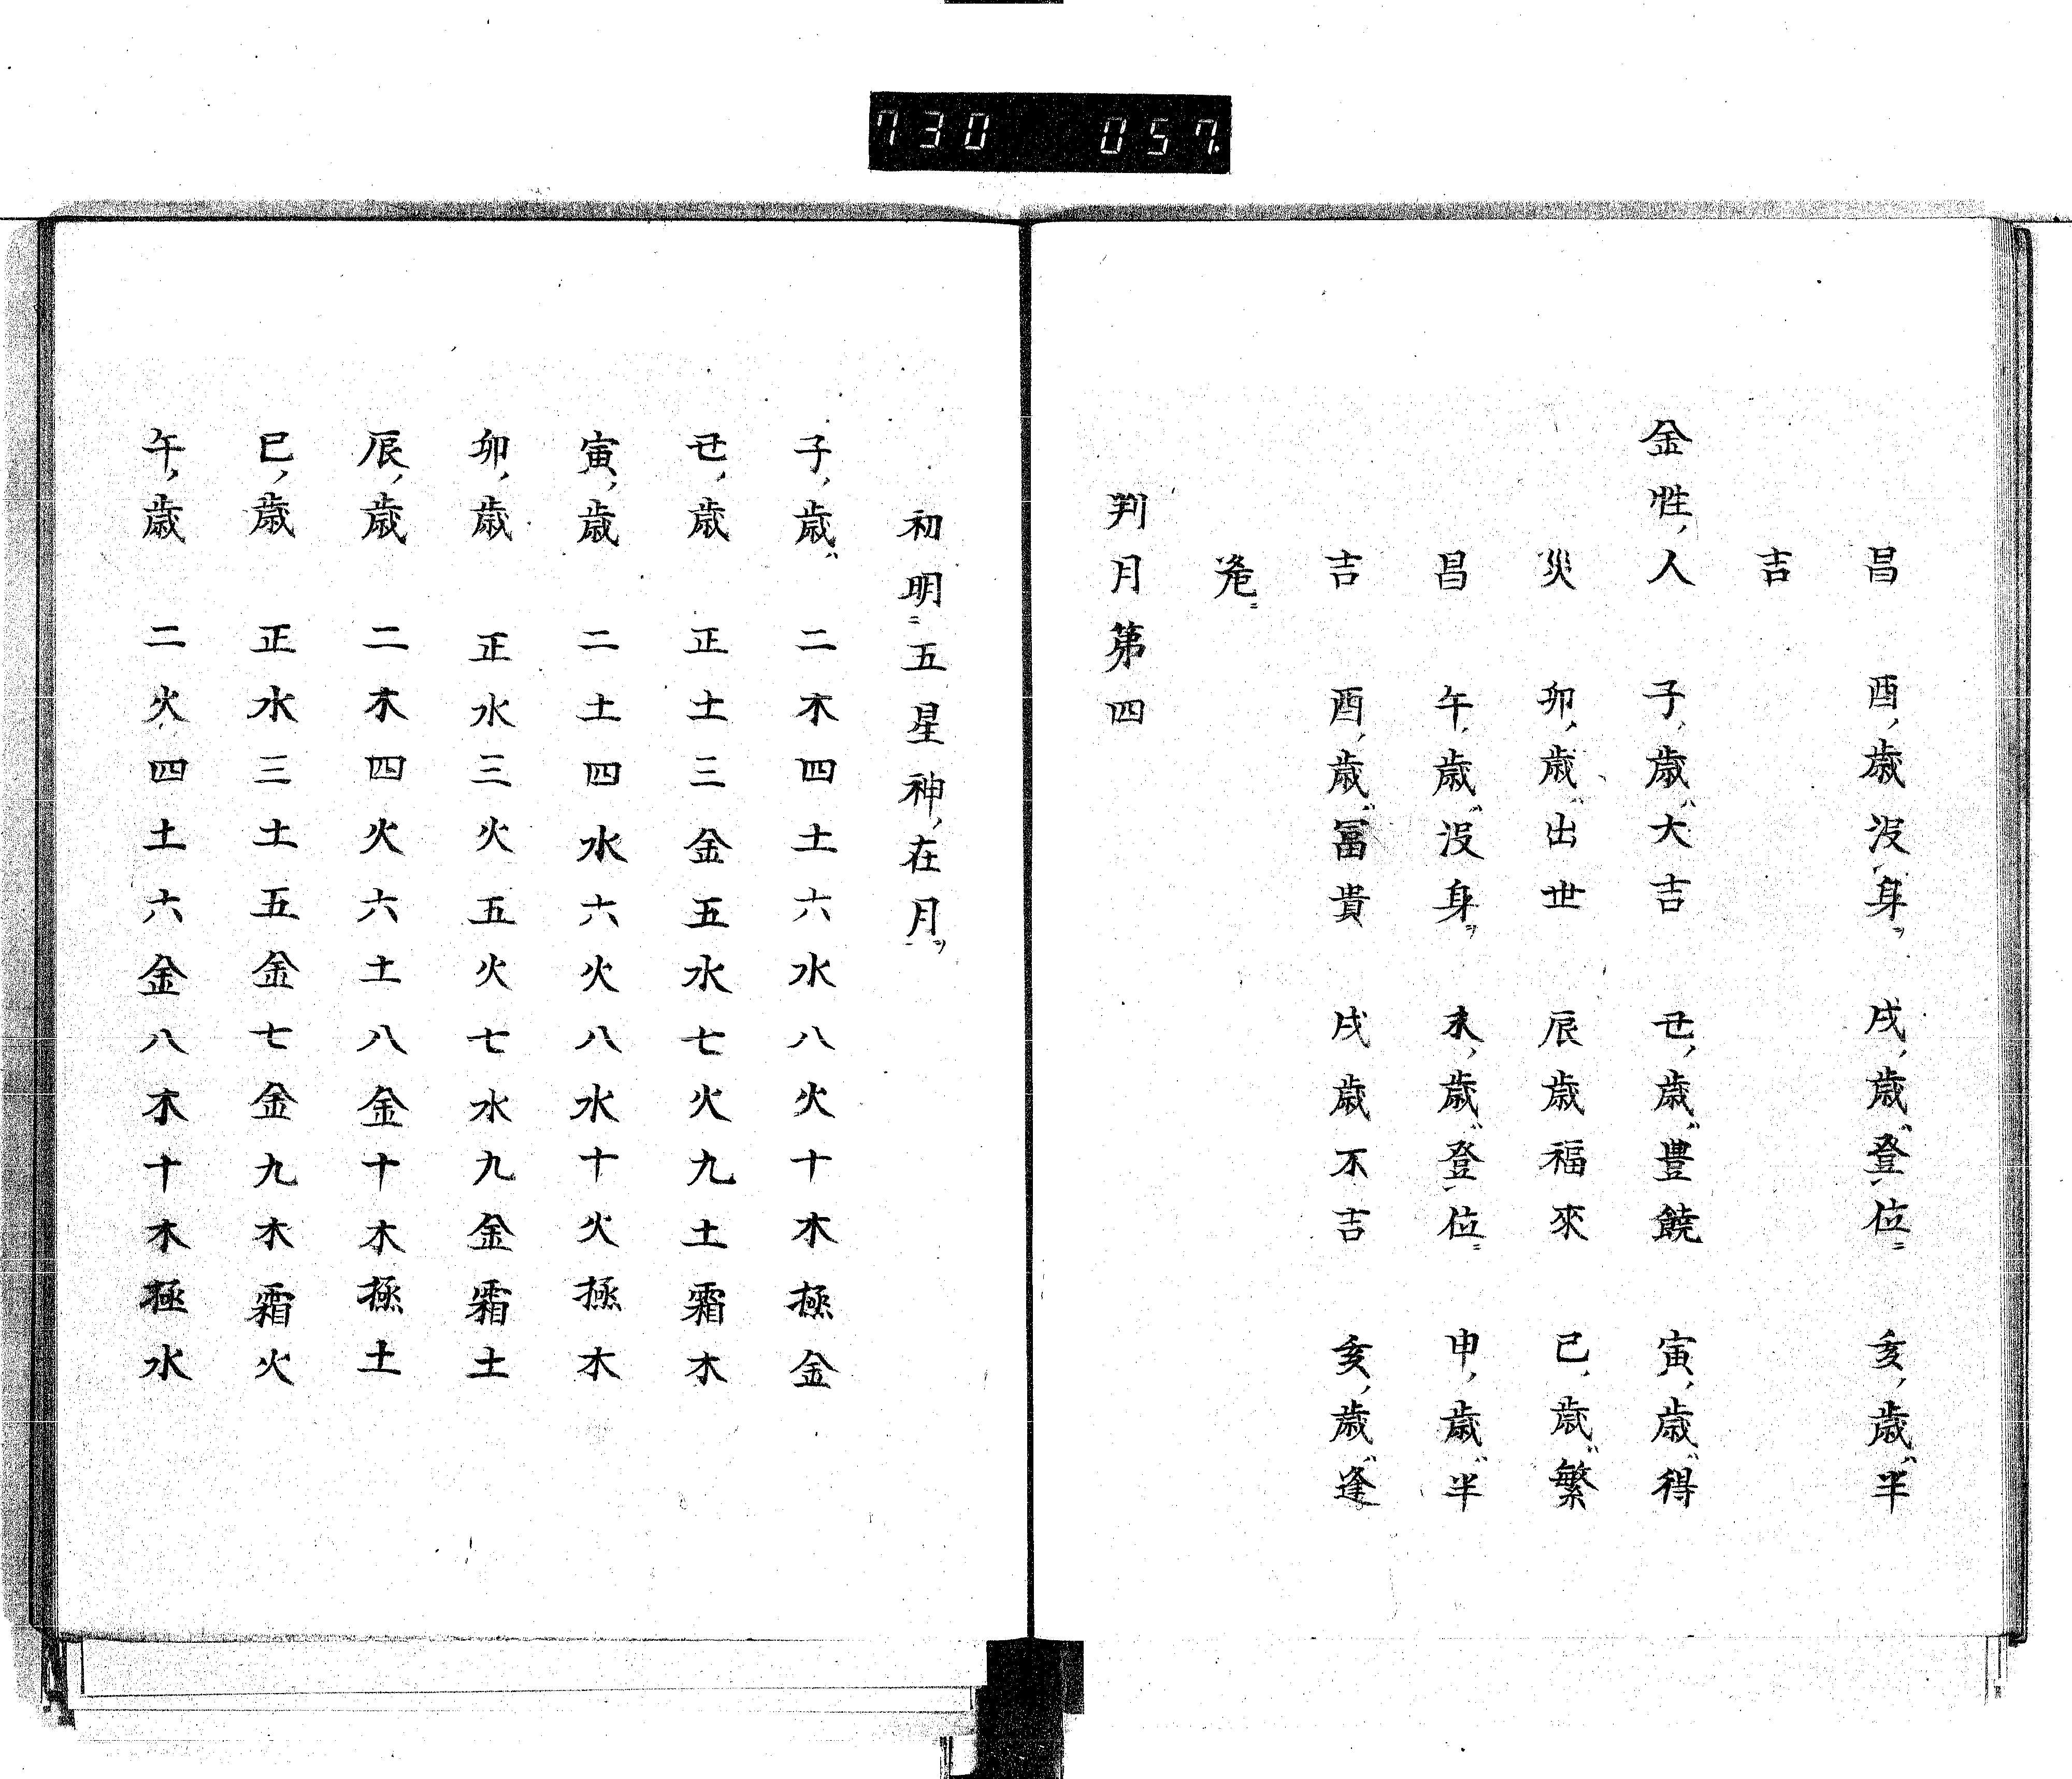 730 057
昌 酉歳没身 戌歳登位 亥歳半
吉
金性人 子歳大吉 丑歳豊饒 寅歳得
災 卯歳出世 辰歳福來 巳歳繁
昌 午歳没身 未歳登位 申歳半
吉 酉歳冨貴 戌歳不吉 亥歳逢
判月第四
初明五星神在月
子歳 二木四土六水八火十木極金
丑歳 正土三金五水七火九土霜木
寅歳 二土四水六火八水十火極木
卯歳 正水三火五火七水九金霜土
辰歳 二木四火六土八金十木極土
巳歳 正水三土五金七金九木霜火
午歳 二火四土六金八木十木極水